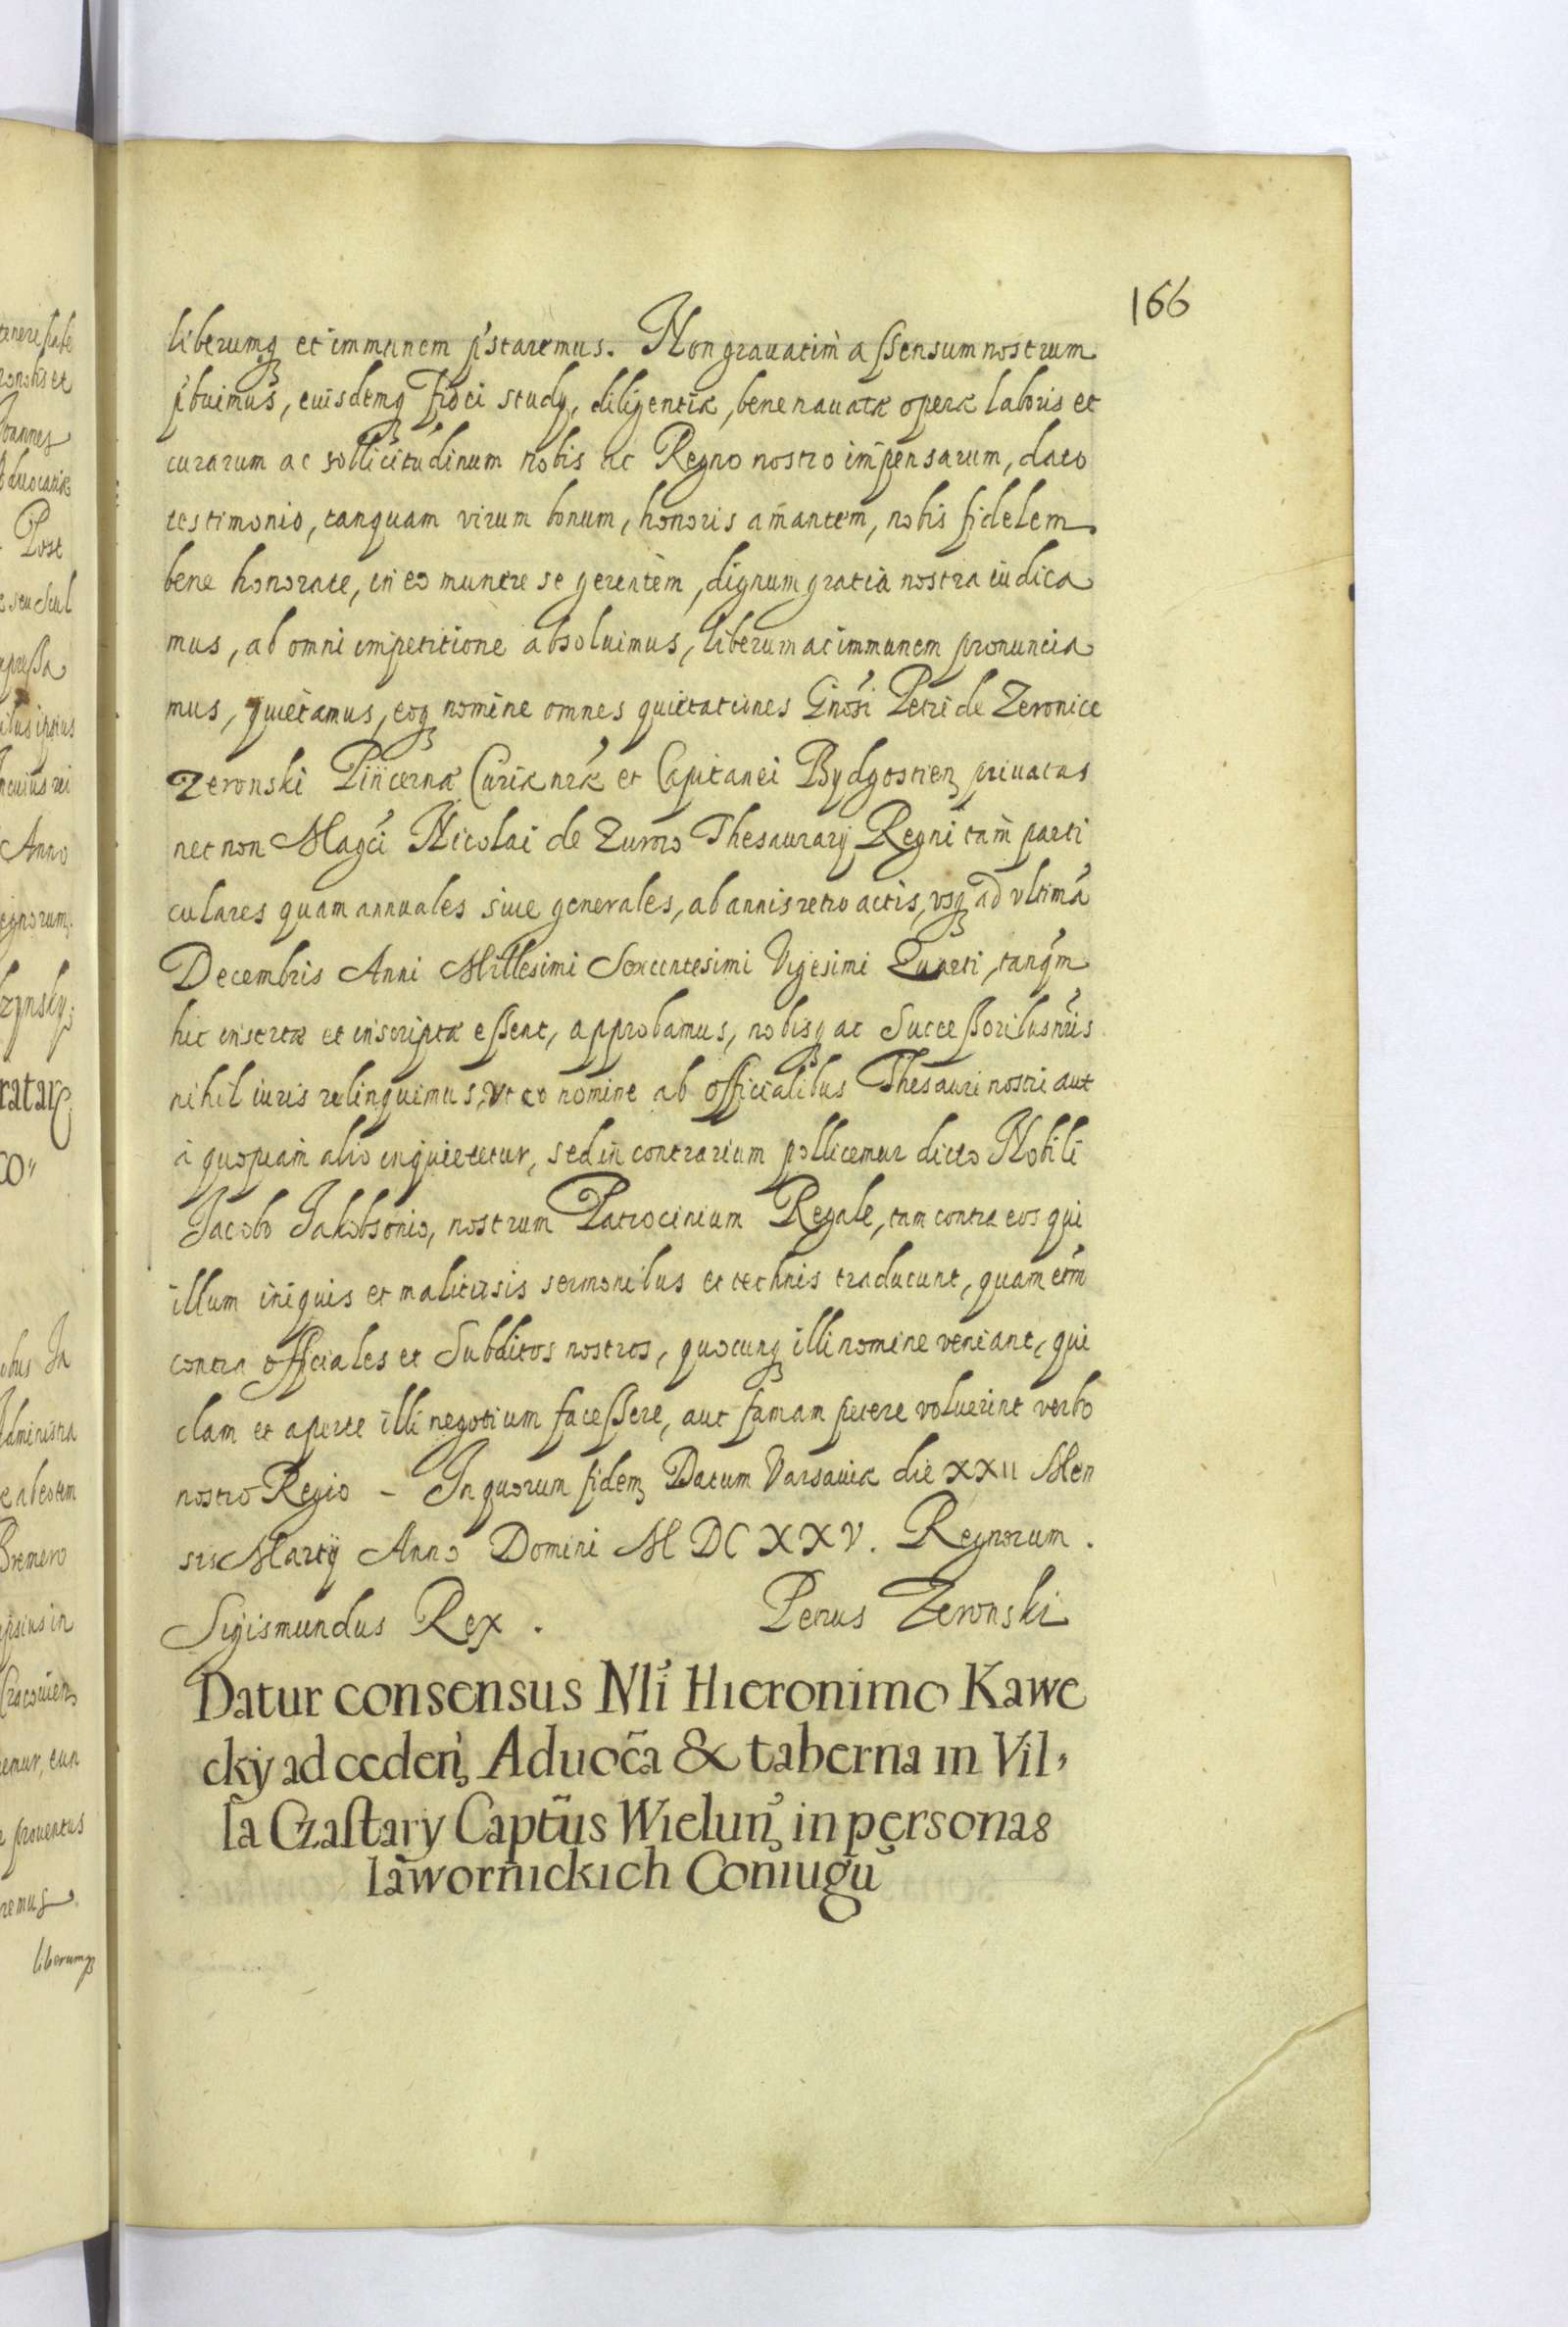 166
liberumq₃ et immunem p̃staremus. Non grauatim assensum nostrum
p̃buimus, euisdemq₃ fidei study, diligentiæ, bene nauatæ operæ laboris et
curarum ac sollicitudinum nobis ac Regno nostro impensarum, dato
testimonio, tanquam virum bonum, honoris amantem, nobis fidelem
bene honorate, in eo munere se gerentem, dignum gratia nostra iudica
mus, ab omni impetitione absoluimus, liberum ac immunem pronuncia
mus, quietamus, eoq₃ nomine omnes quietationes Gnosi Petri de Zeronice
Zeronski Pincernæ Curiæ nræ et Capitanei Bydgostien₃ priuatas
nec non Magci Nicolai de Zurow Thesaurarij Regni tam parti
culares quam annuales siue generales, ab annis retro actis, vsq₃ ad vltimã
Decembris Anni Millesimi Sexcentesimi Vigesimi Quarti, tanq̃m
hic insertæ et inscriptæ essent, approbamus, nobisq₃ ac Successoribus nris
nihil iuris relinquimus, vt eo nomine ab officialibus Thesauri nostri aut
à quopiam alio inquietetur, sed in contrarium pollicemur dicto Nobili
Jacobo Jakobsonio, nostrum Patrocinium Regale, tam contra eos qui
illum iniquis et malitiosis sermonibus et technis traducunt, quam etm
contra officiales et Subditos nostros, quocunq₃ illi nomine veniant, qui
clam et aperte illi negotium facessere, aut famam petere voluerint verbo
nostro Regio - In quorum fidem Datum Varsauiæ die XXII Men
sis Martij Anno Domini M DC XXV. Regnorum.
Sigismundus Rex. Petrus Zeronski
Datur consensus Nli Hieronimo Kawe
cký ad ceden₃ Aduoc̃a & taberna in Vil,
la Czastary Captũs Wielun₃ in personas
Iawornickich Coniugũ
Post
Anno
ratar₃
Bremero
remus
liberumq₃